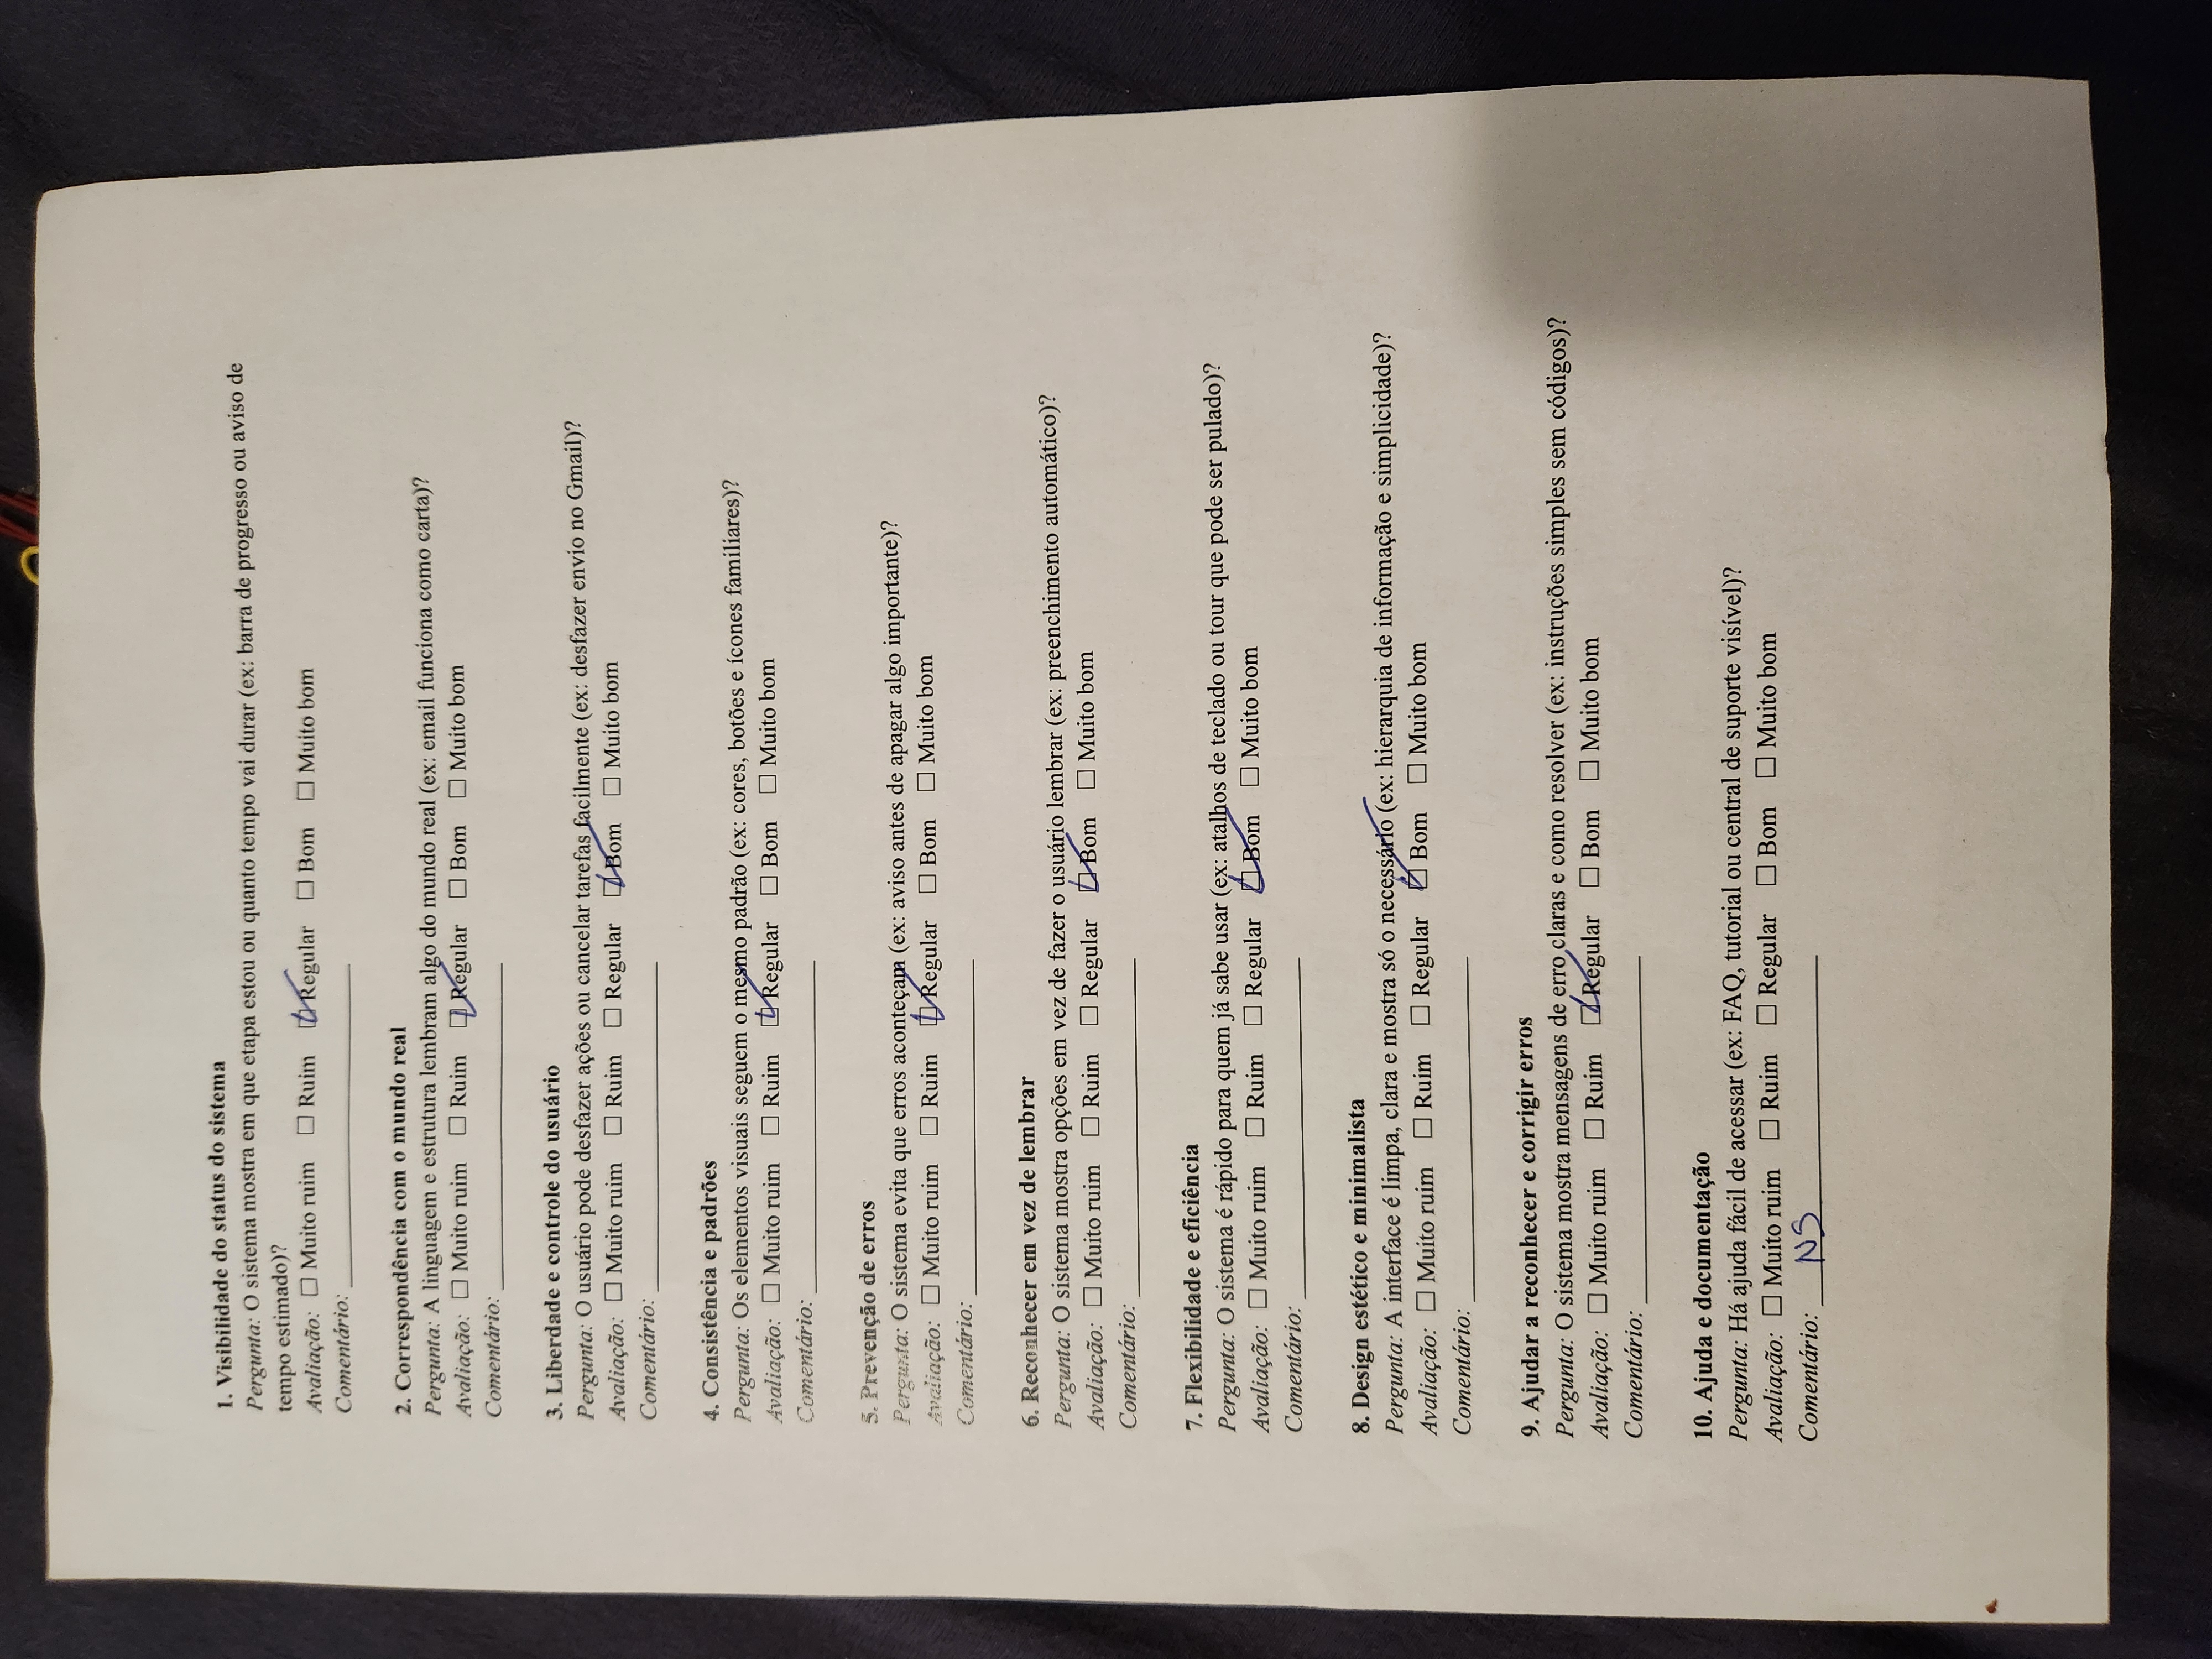 1. Visibilidade do status do sistema
Pergunta: O sistema mostra em que etapa estou ou quanto tempo vai durar (ex: barra de progresso ou aviso de
tempo estimado)?
Avaliação: ☐ Muito ruim ☐ Ruim ☑ Regular ☐ Bom ☐ Muito bom
Comentário: ____________________
2. Correspondência com o mundo real
Pergunta: A linguagem e estrutura lembram algo do mundo real (ex: email funciona como carta)?
Avaliação: ☐ Muito ruim ☐ Ruim ☑ Regular ☐ Bom ☐ Muito bom
Comentário: ____________________
3. Liberdade e controle do usuário
Pergunta: O usuário pode desfazer ações ou cancelar tarefas facilmente (ex: desfazer envio no Gmail)?
Avaliação: ☐ Muito ruim ☐ Ruim ☐ Regular ☑ Bom ☐ Muito bom
Comentário: ____________________
4. Consistência e padrões
Pergunta: Os elementos visuais seguem o mesmo padrão (ex: cores, botões e ícones familiares)?
Avaliação: ☐ Muito ruim ☐ Ruim ☑ Regular ☐ Bom ☐ Muito bom
Comentário: ____________________
5. Prevenção de erros
Pergunta: O sistema evita que erros aconteçam (ex: aviso antes de apagar algo importante)?
Avaliação: ☐ Muito ruim ☐ Ruim ☑ Regular ☐ Bom ☐ Muito bom
Comentário: ____________________
6. Reconhecer em vez de lembrar
Pergunta: O sistema mostra opções em vez de fazer o usuário lembrar (ex: preenchimento automático)?
Avaliação: ☐ Muito ruim ☐ Ruim ☐ Regular ☑ Bom ☐ Muito bom
Comentário: ____________________
7. Flexibilidade e eficiência
Pergunta: O sistema é rápido para quem já sabe usar (ex: atalhos de teclado ou tour que pode ser pulado)?
Avaliação: ☐ Muito ruim ☐ Ruim ☐ Regular ☑ Bom ☐ Muito bom
Comentário: ____________________
8. Design estético e minimalista
Pergunta: A interface é limpa, clara e mostra só o necessário (ex: hierarquia de informação e simplicidade)?
Avaliação: ☐ Muito ruim ☐ Ruim ☐ Regular ☑ Bom ☐ Muito bom
Comentário: ____________________
9. Ajudar a reconhecer e corrigir erros
Pergunta: O sistema mostra mensagens de erro claras e como resolver (ex: instruções simples sem códigos)?
Avaliação: ☐ Muito ruim ☐ Ruim ☑ Regular ☐ Bom ☐ Muito bom
Comentário: ____________________
10. Ajuda e documentação
Pergunta: Há ajuda fácil de acessar (ex: FAQ, tutorial ou central de suporte visível)?
Avaliação: ☐ Muito ruim ☐ Ruim ☐ Regular ☐ Bom ☐ Muito bom
Comentário: NS